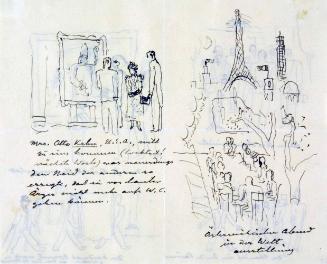 Mrs. Otto Kahn, U.S.A., will
zu uns kommen
nächste Woche) was neuerdings
den Neid der anderen so
erregte, daß sie vor lauter
Ärger nicht mehr auf W.C.
gehen können.
Österreichischer Abend
in der Welt-
ausstellung